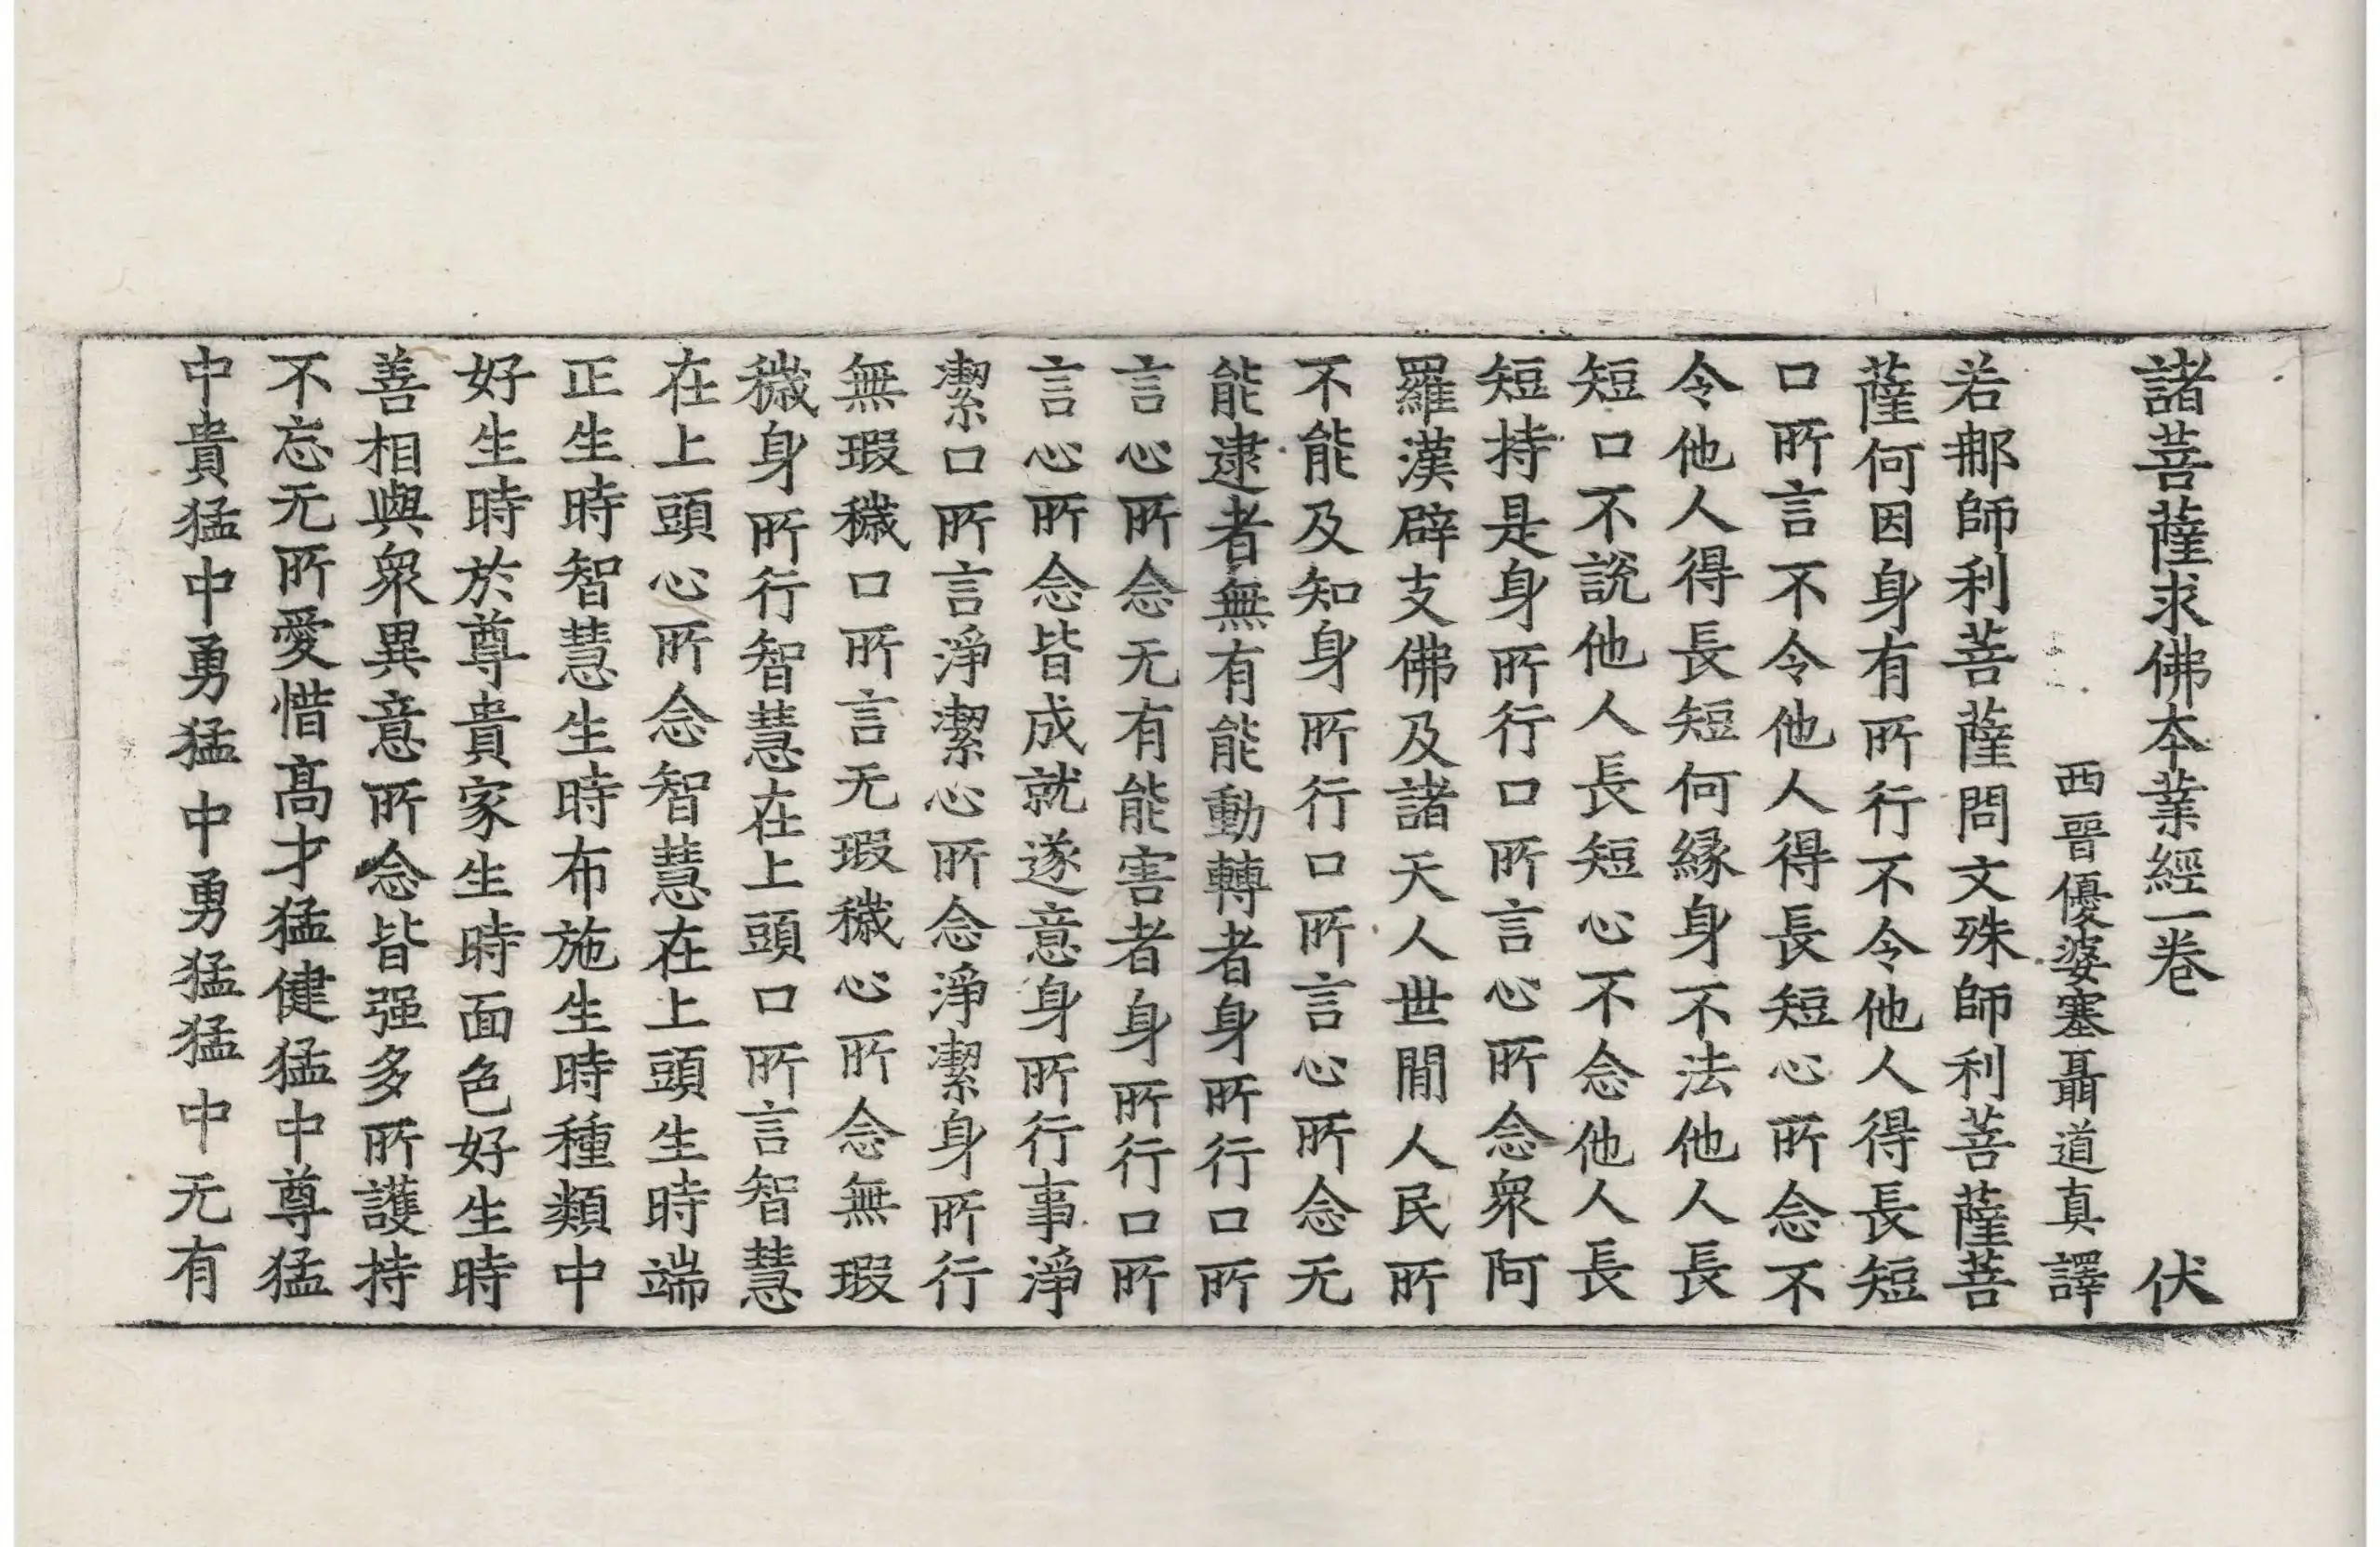 諸菩薩求佛本業經一卷 伏
西晉優婆塞聶道真譯
若𨙻師利菩薩問文殊師利菩薩菩
薩何因身有所行不令他人得長短
口所言不令他人得長短心所念不
令他人得長短何縁身不法他人長
短口不說他人長短心不念他人長
短持是身所行口所言心所念衆阿
羅漢辟支佛及諸天人世閒人民所
不能及知身所行口所言心所念无
能逮者無有能動轉者身所行口所
言心所念无有能害者身所行口所
言心所念皆成就遂意身所行事淨
潔口所言淨潔心所念淨潔身所行
無瑕穢口所言无瑕穢心所念無瑕
穢身所行智慧在上頭口所言智慧
在上頭心所念智慧在上頭生時端
正生時智慧生時布施生時種類中
好生時於尊貴家生時面色好生時
善相與衆異意所念皆强多所護持
不忘无所愛惜髙才猛健猛中尊猛
中貴猛中勇猛中勇猛猛中无有